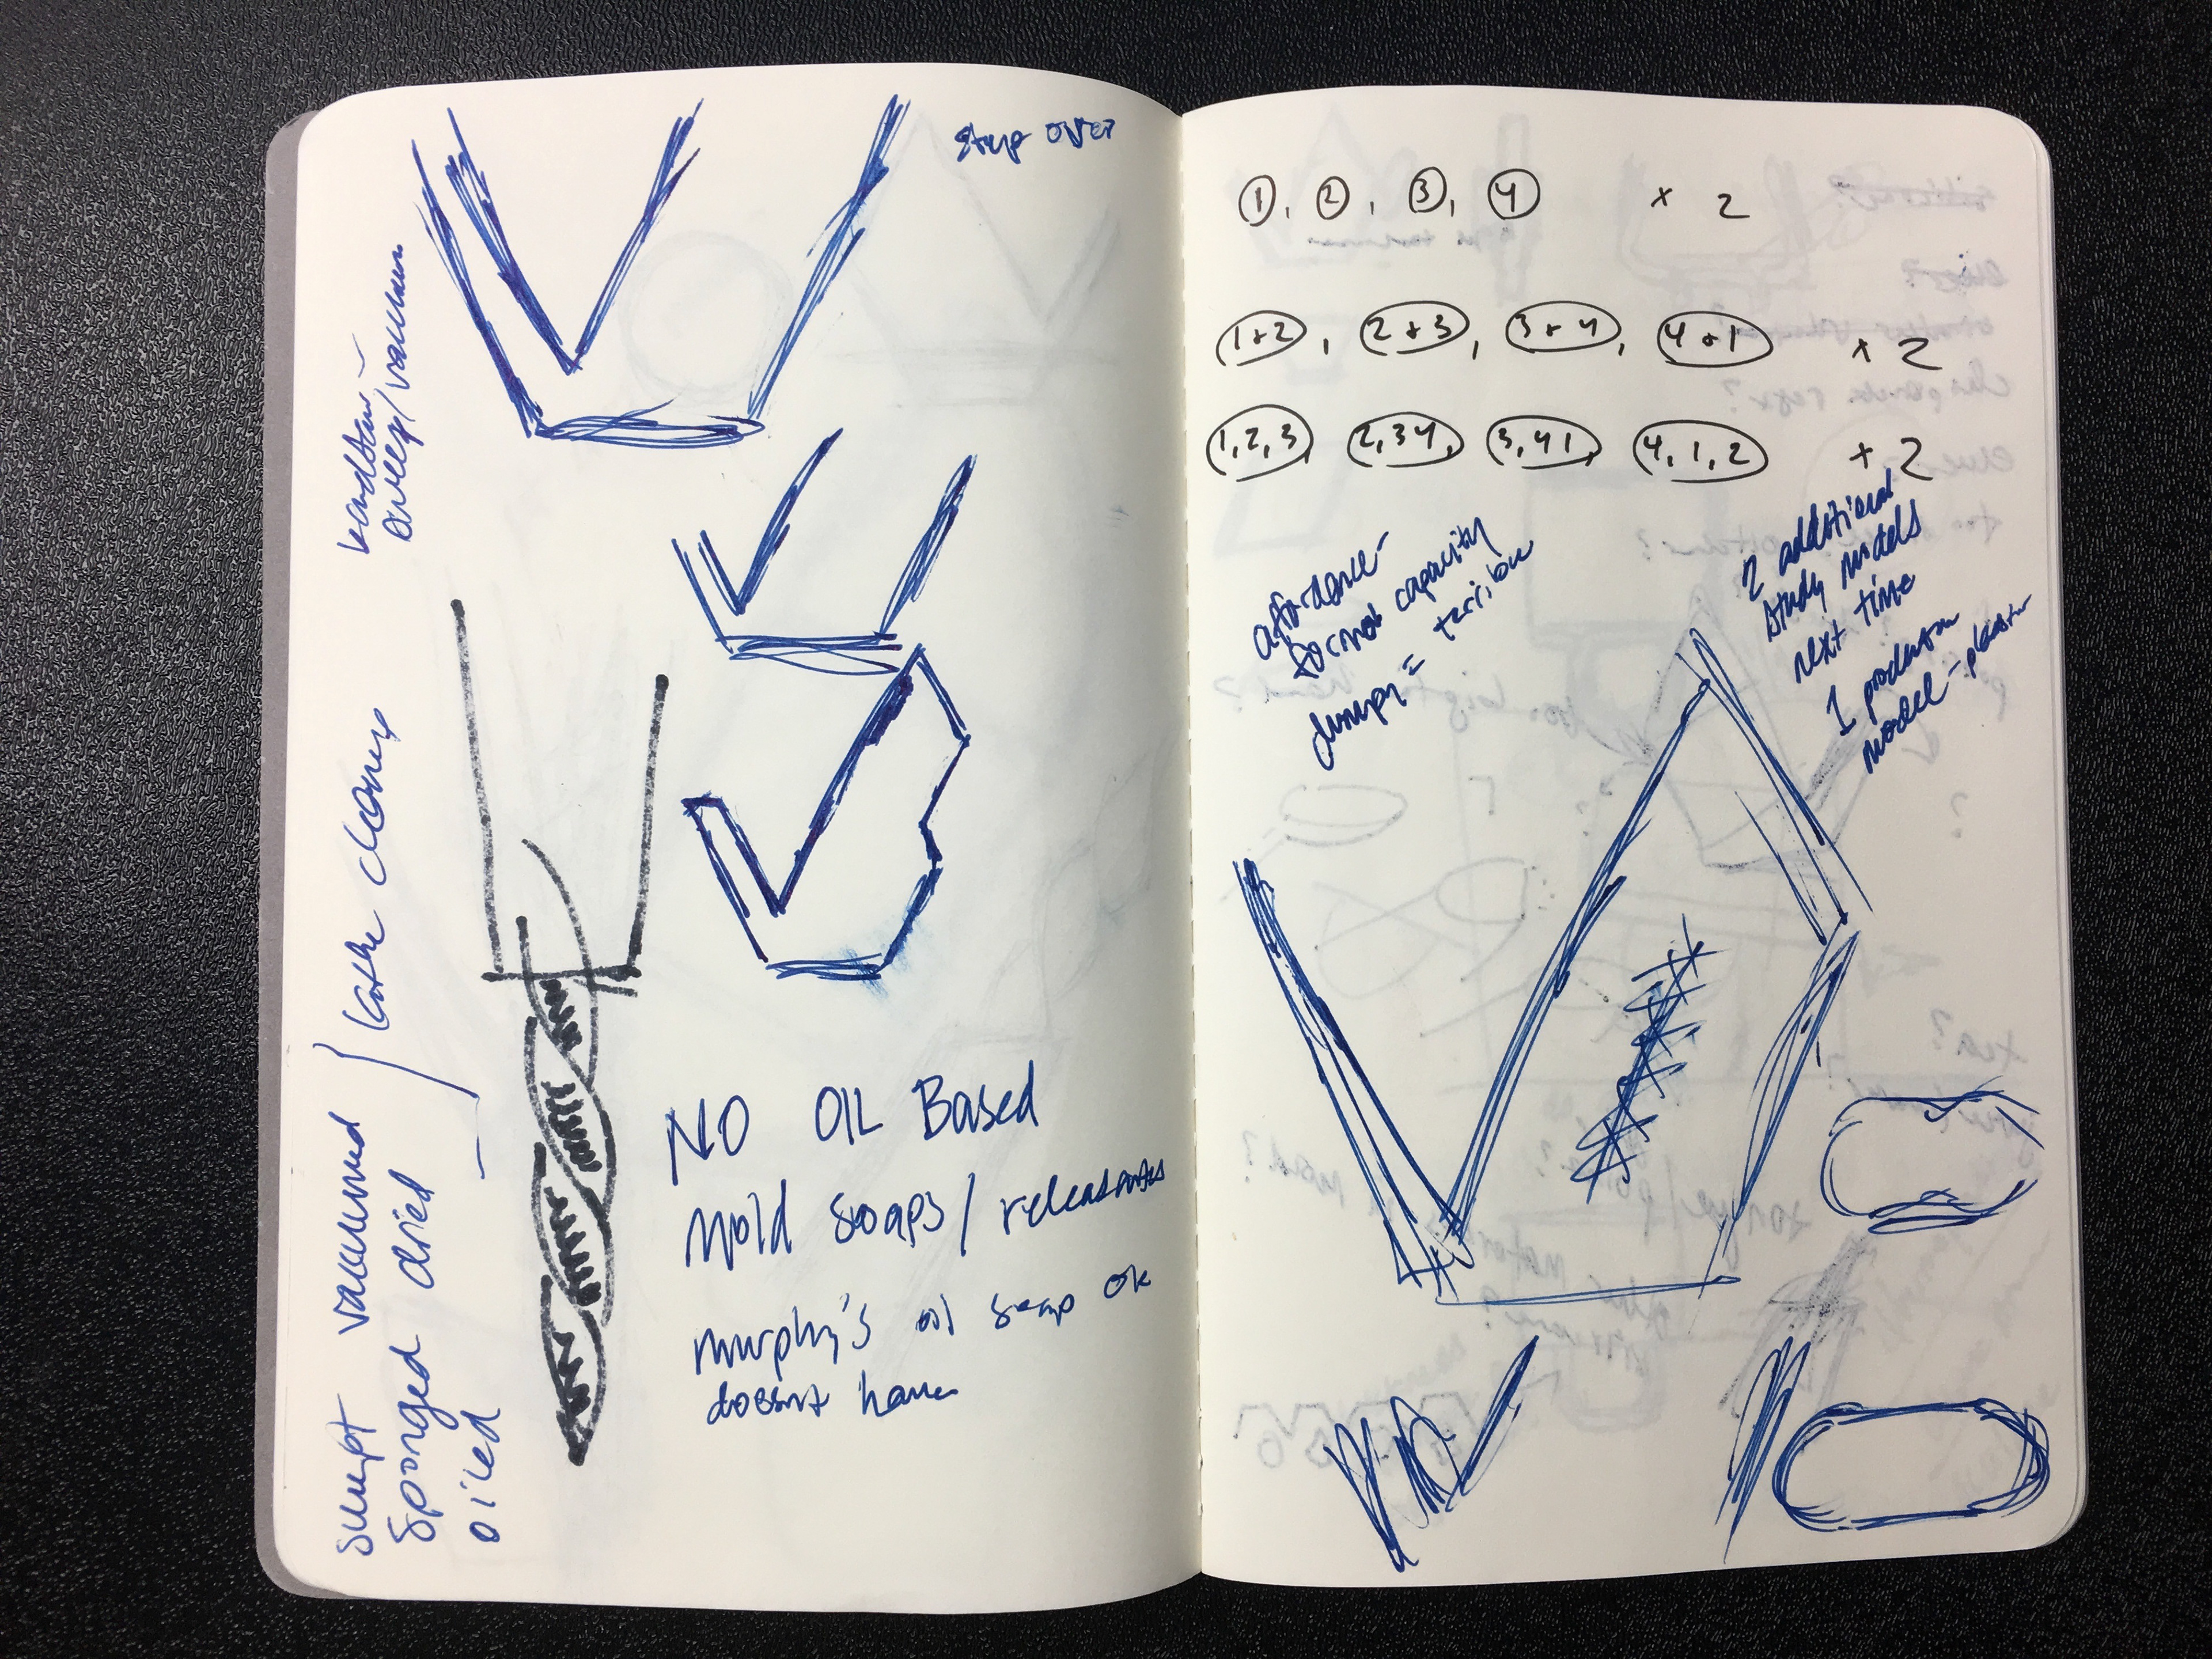 step over
sweep/vacuum
lathe cleanup
swept vacuumed
sponged dried
oiled
NO OIL Based
Mold soaps/
murphy's oil soap ok
doesnt have
1, 2, 3, 4 x 2
1+2, 2+3, 3+4, 4+1 x 2
1,2,3 2,34, 3,41, 4,1,2 + 2
affordance -
capacity
= terrible
2 additional
study models
next time
1 production
model - plaster